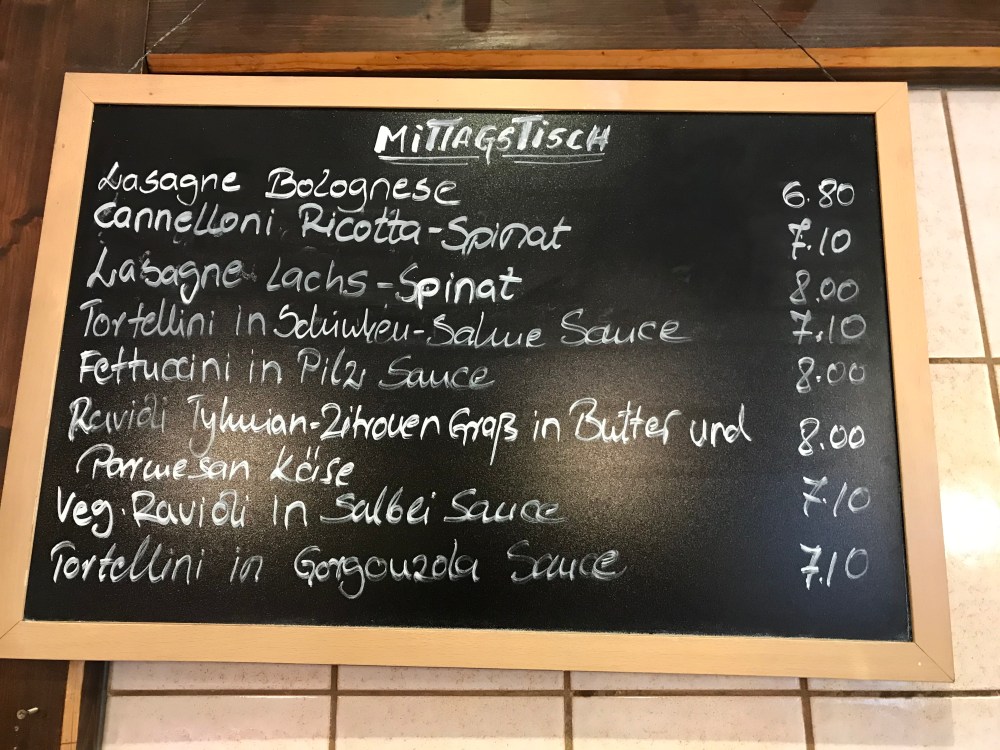 MITTAGSTISCH
Lasagne Bolognese 6.80
Cannelloni Ricotta-Spinat 7.10
Lasagne Lachs-Spinat 8.00
Tortellini in Schinken-Sahne Sauce 7.10
Fettuccini in Pilz Sauce 8.00
Ravioli Tyhmian-Zitronen Graß in Butter und 8.00
Parmesan Käse
Veg. Ravioli in Salbei Sauce 7.10
Tortellini in Gorgonzola Sauce 7.10